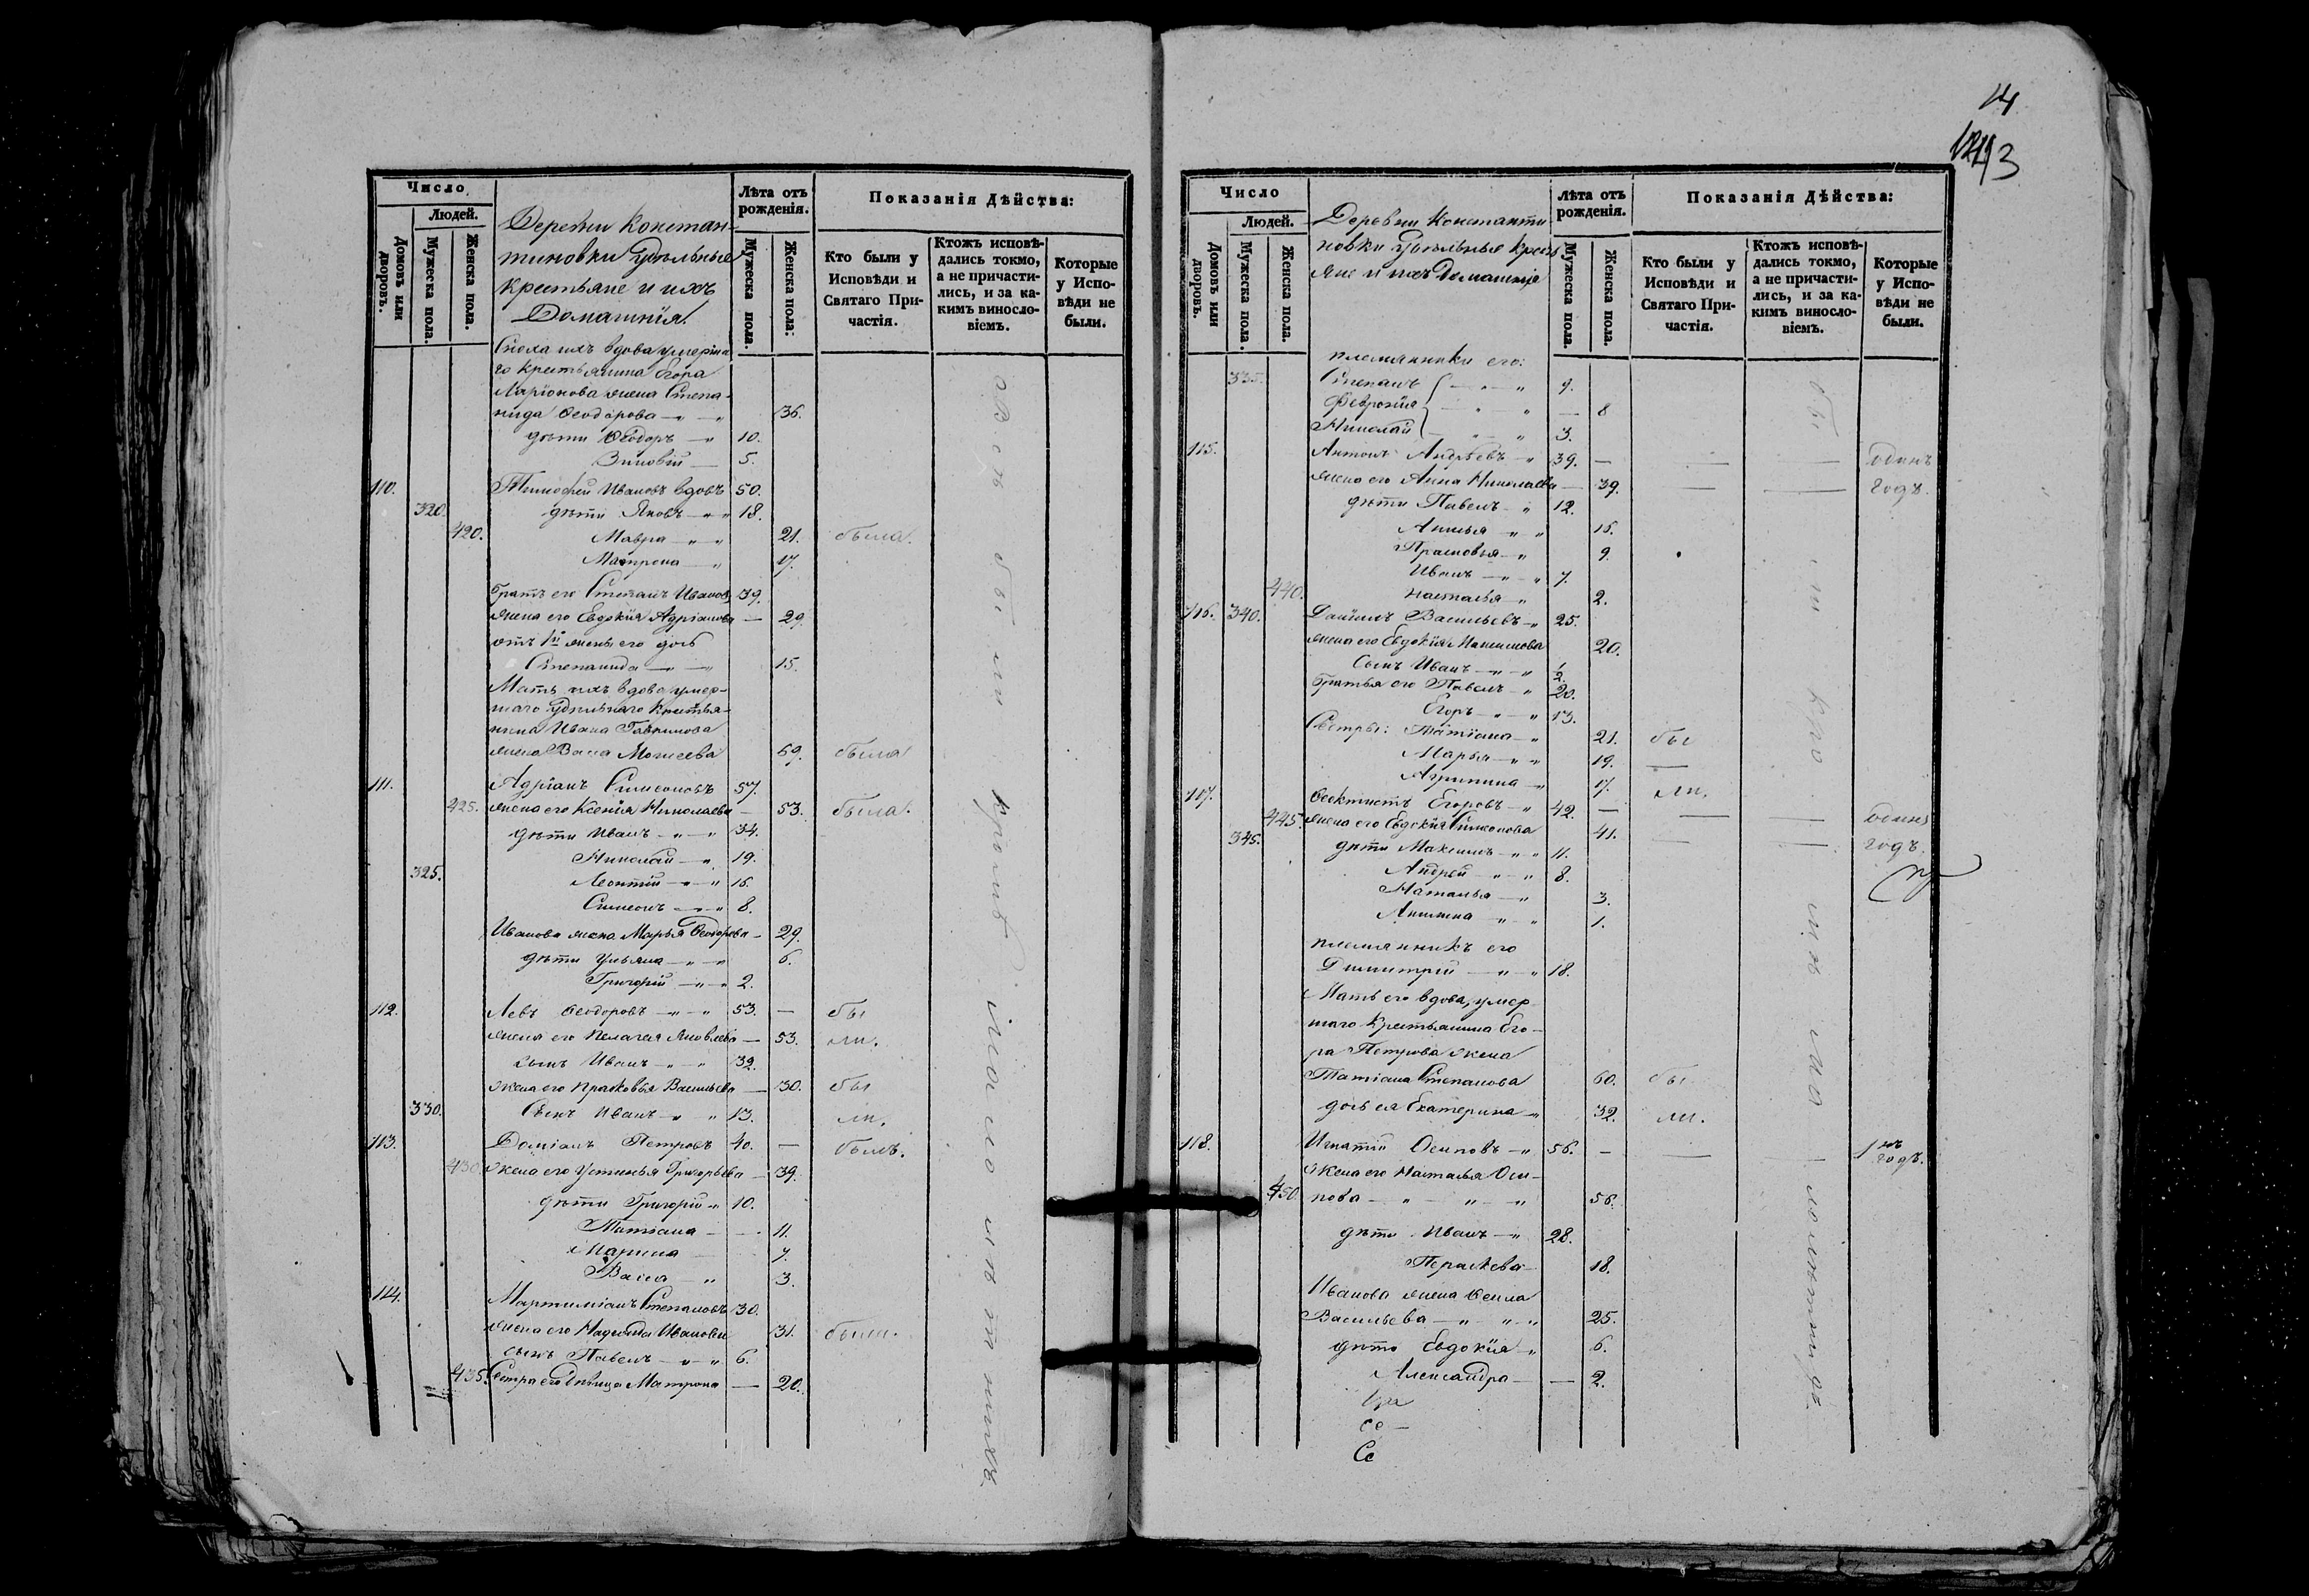 Число
Людей.
Домовъ или дворовъ.
Мужеска пола.
Женска пола.
Деревни Констан-
тиновки Удѣльные
крестьяне и ихъ
Домашнія.
Лѣта отъ рожденія.
Мужеска пола.
Женска пола:
Показанія Дѣйства:
Кто были у Исповѣди и Святаго При-частія.
Ктожъ исповѣ-дались токмо, а не причасти-лись, и за ка-кимъ виносло-віемъ.
Которые у Испо-вѣди не были.
Сноха ихъ вдова умерша
го крестьянина Егора
Ларіонова жена Степа-
нида Ѳеодорова 36.
дѣти Ѳеодоръ 10.
Зиновій 5.
110. Тимофей Ивановъ вдовъ 50.
320. дѣти Яковъ 18.
420. Мавра 21. была.
Матрона 17.
Братъ его Степанъ Ивановъ 39.
жена его Евдокія Адріанова 29.
отъ 1й жены его дочь
Степанида 15.
Мать ихъ вдова умер-
шаго удѣльнаго крестья-
нина Ивана Гаврилова
жена Васса Моисеева 69. была
111. Адріанъ Симеоновъ 57.
425. жена его Ксенія Николаева 53. была.
дѣти Иванъ 34.
Николай 19.
325. Леонтій 16.
Симеонъ 8.
Иванова жена Марья Ѳеодорова 29.
дѣти Ульяна 6.
Григорій 2.
112. Левъ Ѳеодоровъ 53. бы
жена его Пелагея Яковлева 53. ли.
сынъ Иванъ 32.
жена его Прасковья Васильева 30. бы
330. Сынъ Иванъ 13. ли.
113. Даміанъ Петровъ 40. былъ.
430. жена его Устинья Григорьева 39.
дѣти Григорій 10.
Татіана 11.
Марина 7.
Васса 3.
114. Мартиніанъ Степановъ 30.
жена его Надежда Иванова 31. были.
сынъ Павелъ 6.
435. Сестра его дѣвица Матрона 20.
14
3
Число
Людей.
Домовъ или дворовъ.
Мужеска пола.
Женска пола.
Деревни Константи
новки Удѣльные кресть
яне и ихъ Домашніе
Лѣта отъ рожденія.
Мужеска пола.
Женска пола.
Показанія Дѣйства:
Кто были у Исповѣди и Святаго При-частія.
Ктожъ исповѣ-дались токмо, а не причасти-лись, и за ка-кимъ виносло-віемъ.
Которые у Испо-вѣди не были.
племянники его:
335. Степанъ 9.
Февронія 8
Николай 3.
115. Антонъ Андреевъ 39. одинъ
жена его Анна Николаева 39. годъ.
дѣти Павелъ 12.
Анисья 15.
Прасковья 9.
Иванъ 7.
440. Наталья 2.
116. 340. Даніилъ Васильевъ 25.
жена его Евдокія Максимова 20.
Сынъ Иванъ 1/2.
Братья его Павелъ 20.
Егоръ 13.
Сестры: Татіана 21. бы
Марья 19.
Агрипина 17. ли.
117. Ѳеоктистъ Егоровъ 42. одинъ
445. жена его Евдокія Симеонова 41. годъ.
345. дѣти Максимъ 11.
Андрей 8.
Наталья 3.
Акилина 1.
племянникъ его
Димитрій 18.
Мать его вдова, умер
шаго крестьянина Его-
ра Петрова жена
Татіана Степанова 60. бы
дочь ея Екатерина 32. ли.
118. Игнатій Осиповъ 56. 1нъ годъ.
жена его Наталья Оси-
450. пова 56.
дѣти Иванъ 28.
Параскева 18.
Иванова жена Ѳекла
Васильева 25.
дѣти Евдокія 6.
Александра 2.
се
Се